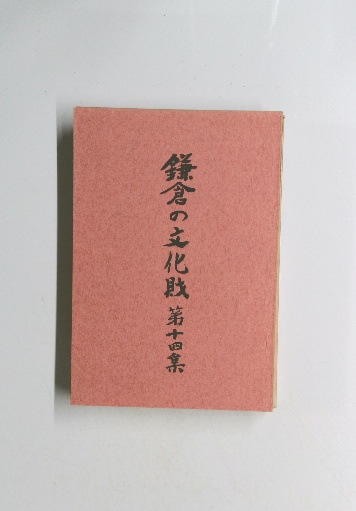 鎌倉の文化財 第十四集